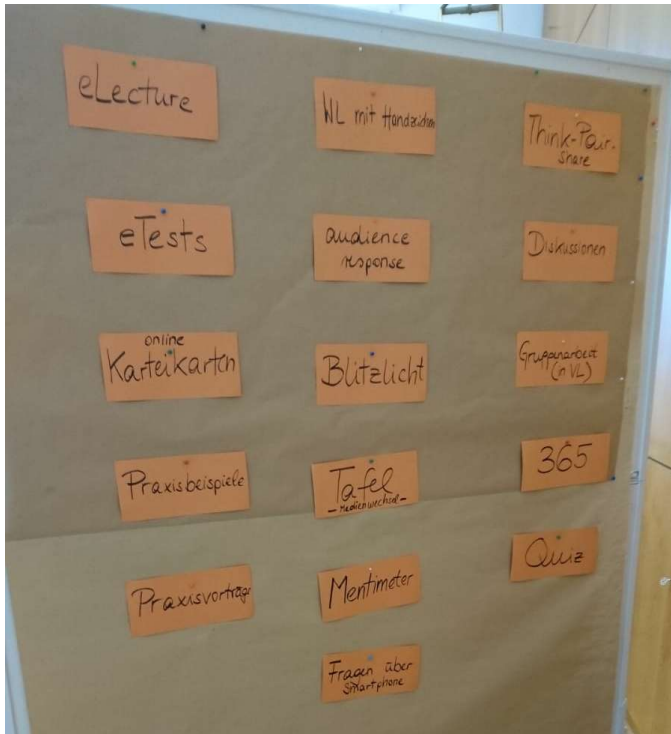 eLecture
eTests
online
Karteikarten
Praxisbeispiele
Praxisvorträge
WL mit Handzeichen
audience
response
Blitzlicht
Tafel
- Medienwechsel -
Mentimeter
Fragen über
Smartphone
Think-Pair-
Share
Diskussionen
Gruppenarbeit
(in VL)
365
Quiz